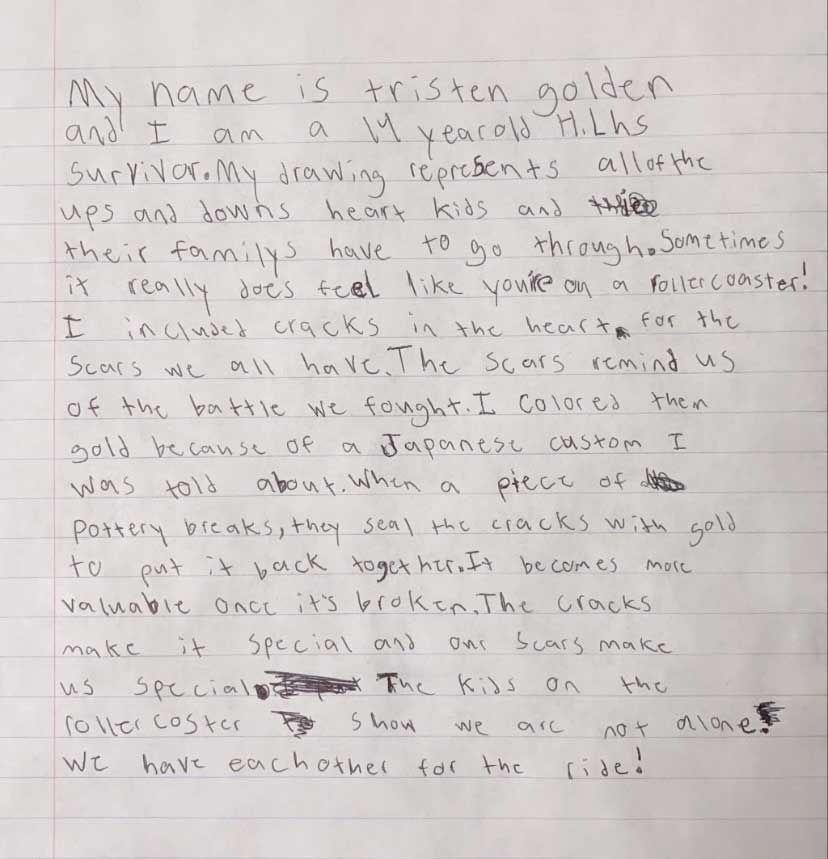 My name is tristen golden
and I am a 14 yearold H.Lhs
Survivor. My drawing represents all of the
ups and downs heart kids and
their familys have to go through. Sometimes
it really does feel like you're on a rollercoaster!
I included cracks in the heart for the
scars we all have. The scars remind us
of the battle we fought. I colored them
gold because of a Japanese custom I
was told about. When a piece of
pottery breaks, they seal the cracks with gold
to put it back together. It becomes more
valuable once it's broken. The cracks
make it special and our scars make
us special. The kids on the
roller coster show we are not alone.
We have eachother for the ride!